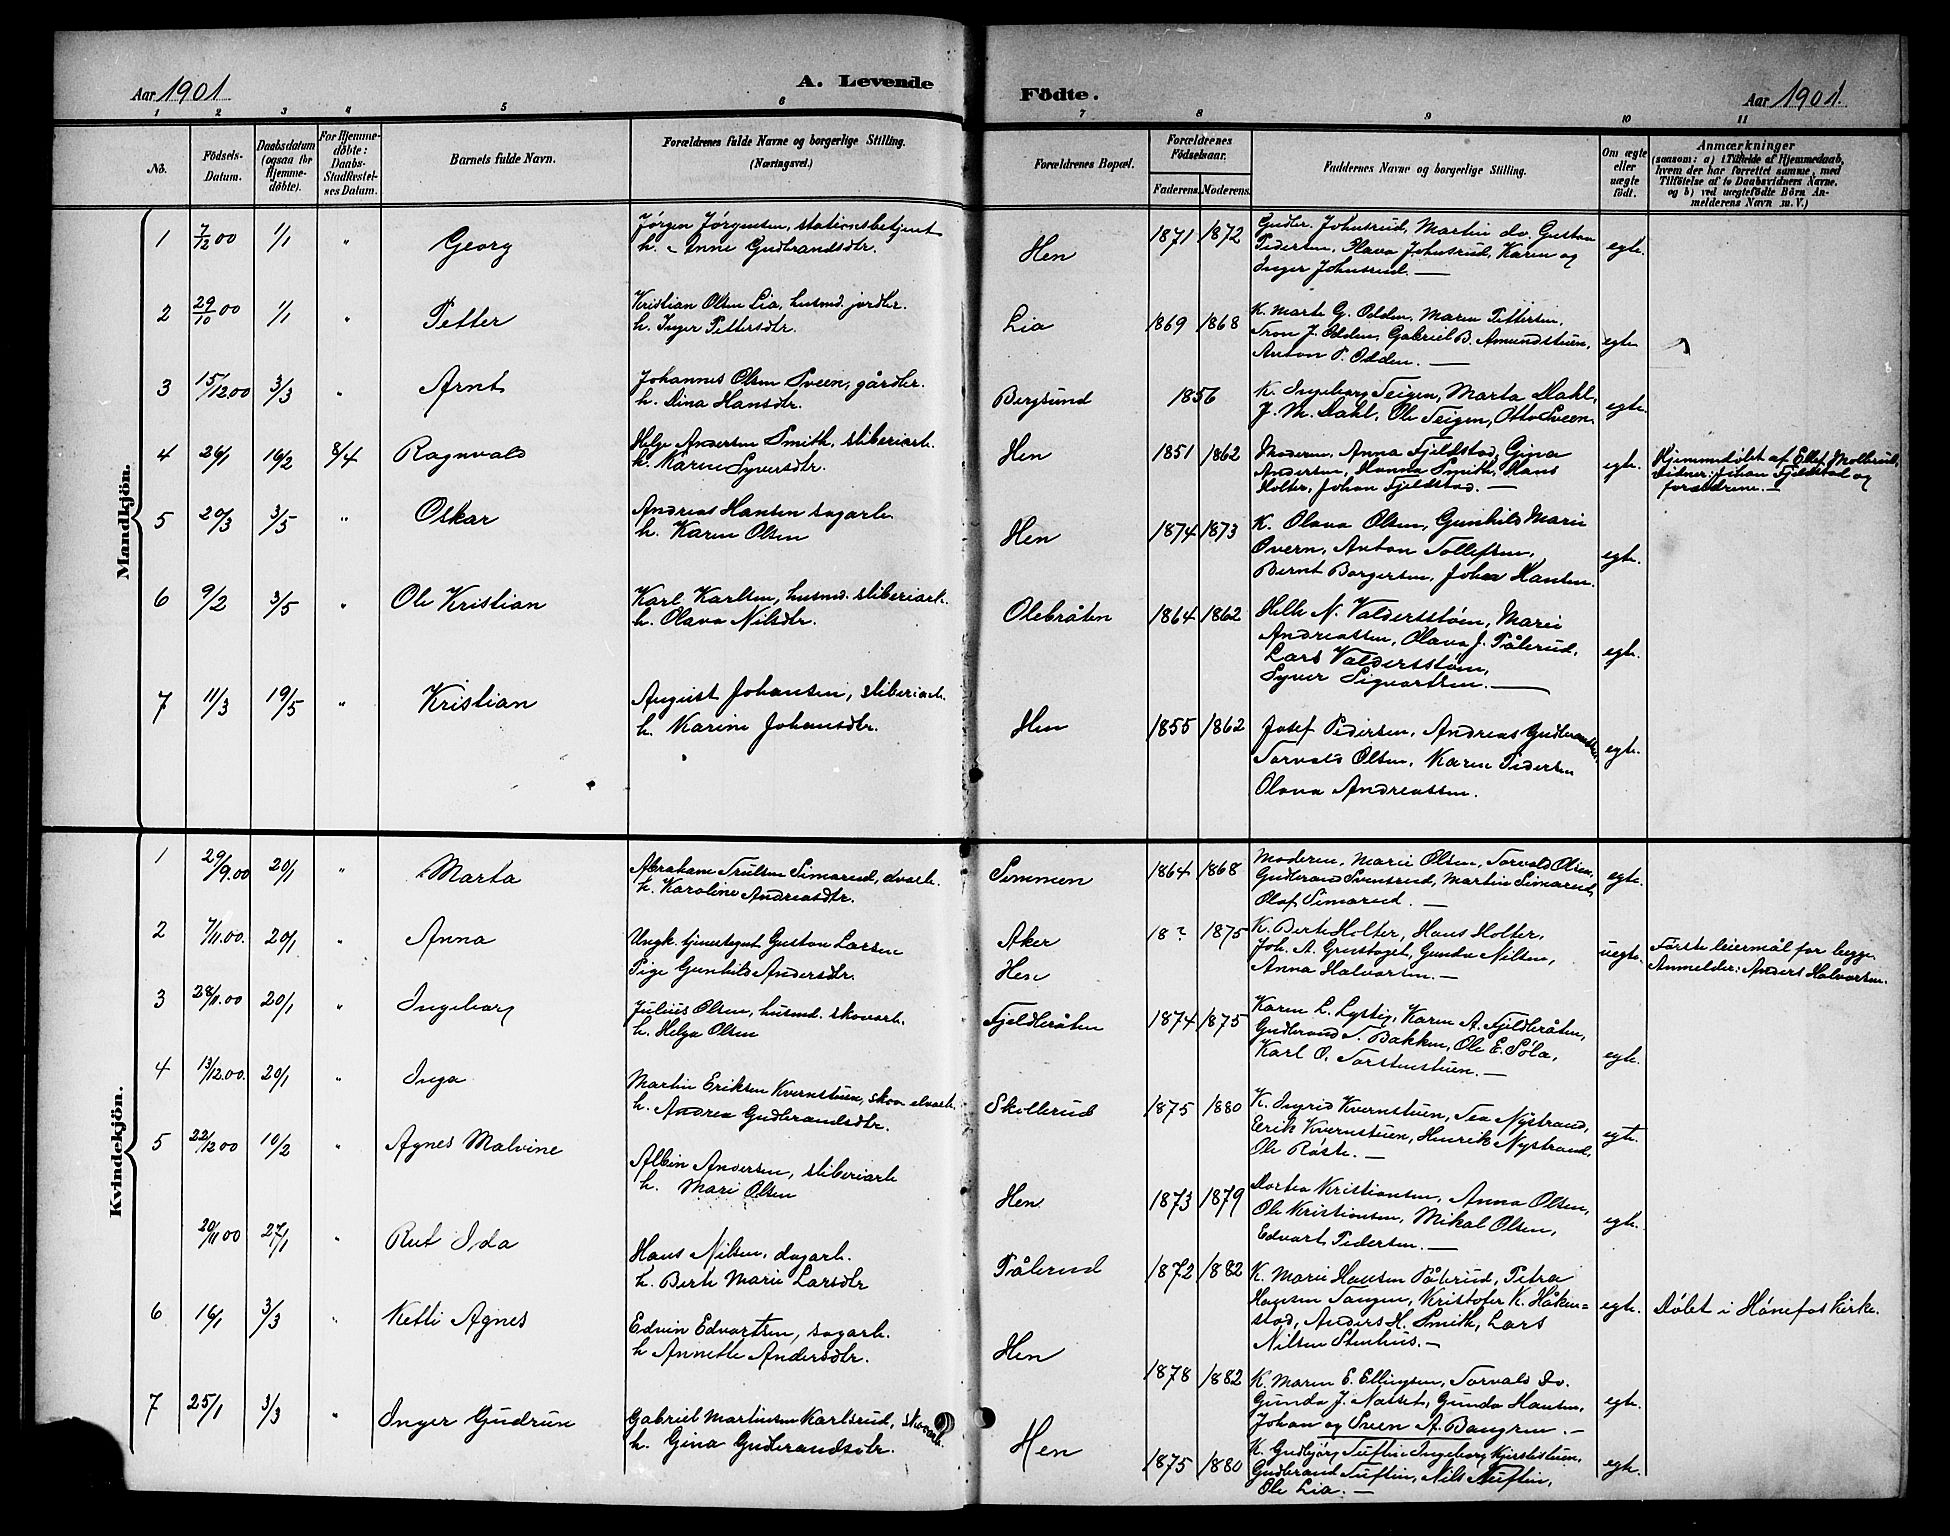 Aar 1901
A. Levende
Födte.
Aar 1901.
1 2 3 4 5 6 7 8 9 10 11
No.
Födsels-
Datum.
Daabsdatum
(ogsaa for
Hjemme-
döbte).
For Hjemme-
döbte:
Daabs-
Stadfæstel-
ses Datum.
Barnets fulde Navn.
Forældrenes fulde Navne og borgerlige Stilling.
(Næringsvei.)
Forældrenes Bopæl.
Forældrenes
Födselsaar.
Faderens. Moderens.
Faddernes Navne og borgerlige Stilling.
Om ægte
eller
uægte
födt.
Anmærkninger
(saasom: a) i Tilfælde af Hjemmedaab,
hvem der har forrettet samme, med
Tilföielse af to Daabsvidners Navne.
og b) ved uægtefödte Börn An-
melderens Navn m. V.)
Mandkjön.
1 7/12 00 1/1 " Georg
Jørgen Jørgensen, stationsbetjent
h. Anne Gudbrandsdtr.
Hen 1871 1872
Gudbr. Johnsrud, Martin do. Gustav
Pedersen, Olava Johnsrud, Karen og
Inger Johnsrud. —
egte.
2 29/10 00 1/1 " Petter
Kristian Olsen Lia, husmd. jordbr.
h. Inger Pettersdtr.
Lia 1869 1868
K. Marte G. Odden, Maren Pettersen,
Tron J. Odden, Gabriel B. Amundstuen,
Anton P. Odden. —
egte
3 15/12.00 3/3 " Arnt
Johannes Olsen Sveen, gårdbr.
h. Dina Hansdtr.
Bergsund 1856
K. Ingeborg Teigen, Marta Dahl,
J. M. Dahl, Ole Teigen, Otto Sveen.
egte.
4 26/1 16/2 8/4 Ragnvald
Helge Andersen Smith, sliberiarb.
h. Karen Syversdtr.
Hen 1851 1862
Moderen, Anna Fjeldstad, Gina
Andersen, Hanna Smith, Hans
Holter, Johan Fjeldstad. —
egte.
Hjemmedøbt af Ellef Molbrud,
Vidner: Johan Fjeldstad og
forældrene. —
5 20/3 3/5 " Oskar
Andreas Hansen sagarb.
h. Karen Olsen
Hen 1874 1873
K. Olava Olsen, Gunhild Marie
Overn, Anton Tollefsen,
Bernt Borgersen, Johan Hansen.
egte.
6 9/2 3/5 " Ole Kristian
Karl Karlsen, husmd. sliberiarb.
h. Olava Nilsdtr.
Olebråten 1864 1862
Helle N. Valdersstøen, Marie
Andreassen, Olava J. Pålerud,
Lars Valdersstøen,
Syver Sigvartsen. —
egte.
7 11/3 19/5 " Kristian
August Johansen, sliberiarb.
h. Karine Johansdtr.
Hen 1855 1862
Josef Pedersen, Andreas Gudbrandsen,
Torvald Olsen, Karen Pedersen
Olava Andreassen.
egte.
Kvindekjön.
1 29/9.00 20/1 " Marta
Abraham Trulsen Simarud, dvarb.
h. Karoline Andreasdtr.
Semmen 1864 1868
Moderen, Marie Olsen, Torvald Olsen,
Gudbrand Svensrud, Martin Simarud,
Olaf Simarud. —
egte.
2 7/11.00. 20/1 " Anna
Ungk. tjenestegut Gustav Larsen
Pige Gunhild Andersdtr.
Aker
Hen
18? 1875
K. Berte Holter, Hans Holter,
Joh. A. Grustaget, Gunda Nilsen,
Anna Halvorsen. —
uegte.
Første leiermål for begge.
Anmelder: Anders Halvorsen.
3 28/11.00 20/1 " Ingeborg
Julius Olsen, husmd. skovarb.
h. Helga Olsen
Fjeldbråten 1874 1875
Karen L. Lystig, Karen A. Fjeldbråten,
Gudbrand T. Bakken, Ole E. Søla,
Karl O. Torstenstuen. —
egte.
4 13/12.00. 20/1 " Inga
Martin Eriksen Kvernstuen, skov- elvarb.
h. Andrea Gudbrandsdtr.
Skollerud 1875 1880
K. Ingrid Kvernstuen, Tea Nystrand,
Erik Kvernstuen, Henrik Nystrand,
Ole Røste. —
egte.
5 22/12 00 10/2 " Agnes Malvine
Albin Andersen, sliberiarb
h. Mari Olsen
Hen 1873 1879
Dortea Kristiansen, Anna Olsen,
Ole Kristiansen, Mikal Olsen,
Edvart Pedersen. —
egte.
20/11 00 27/1 " Rut Ida
Hans Nilsen, dagarb.
h. Berte Marie Larsdtr
Pålerud 1872 1882
K. Marie Hansen Pålerud, Petra
Hansen Tangen, Kristofer K. Håken=
stad, Anders H. Smith, Lars
Nilsen Stenhus. —
egte.
Døbt i Hønefos kirke.
6 16/1 3/3 " Ketti Agnes
Edvin Edvartsen, sagarb.
h Annette Andersdtr.
Hen 1878 1882
K. Maren E. Ellingsen, Torvald do.
Gunda J. Næsset, Gunda Hansen,
Johan og Sveen A. Baugren. —
egte.
7 25/1 3/3 " Inger Gudrun
Gabriel Martinsen Karlsrud, skovarb.
h. Gina Gudbrandsdtr.
Hen 1875 1880
K. Gudbjørg Tuftin Ingeborg Kjirstistuen,
Gudbrand Tuftin, Nils Tuftin,
Ole Lia. —
egte.